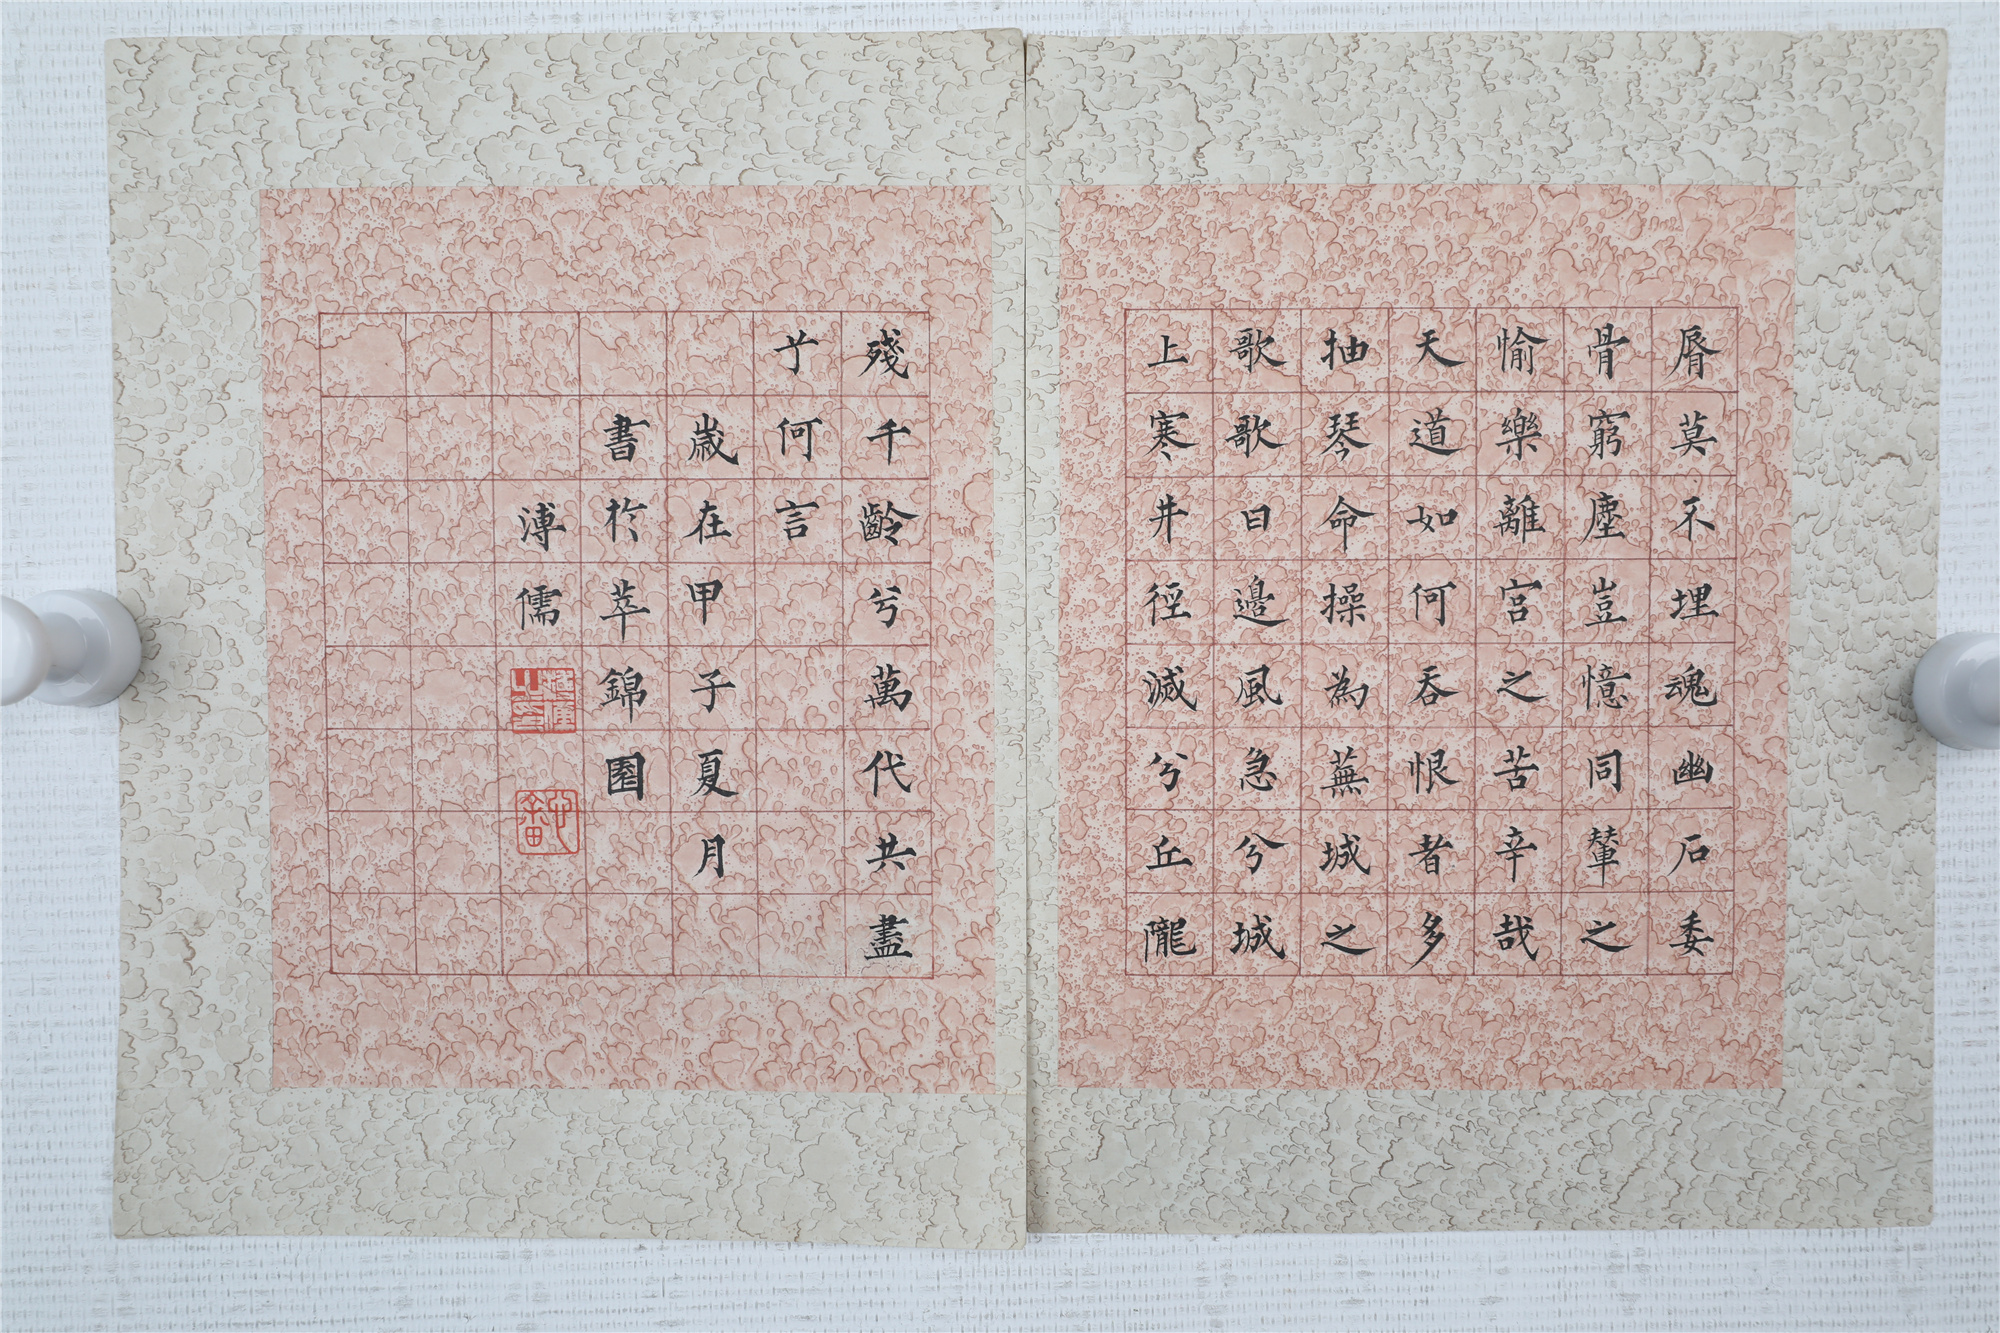 脣莫不埋魂幽石委
骨窮塵豈憶同輦之
愉樂離宮之苦辛哉
天道如何吞恨者多
抽琴命操為蕪城之
歌歌曰邊風急兮城
上寒井徑滅兮丘隴
殘千齡兮萬代共盡
兮何言
歲在甲子夏月
書於萃錦園
溥儒
溥儒之印
心畬